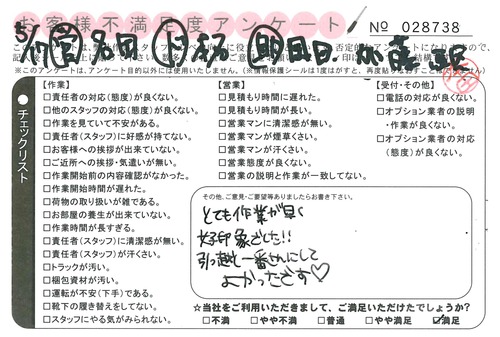 お客様不満足度アンケート
№ 028738
※このアンケートは、アンケート目的以外には使用いたしません。(※情報保護シールは1度はがすと、再度貼りなおすことはできません)
チェックリスト
【作業】
□責任者の対応(態度)が良くない。
□他のスタッフの対応(態度)が良くない。
□作業を見ていて不安がある。
□責任者(スタッフ)に好感が持てない。
□お客様への挨拶が出来ていない。
□ご近所への挨拶・気遣いが無い。
□作業開始前の内容確認がなかった。
□作業開始時間が遅れた。
□荷物の取り扱いが雑である。
□お部屋の養生が出来ていない。
□作業時間が長すぎる。
□責任者(スタッフ)に清潔感が無い。
□責任者(スタッフ)が汗くさい。
□トラックが汚い。
□梱包資材が汚い。
□運転が不安(下手)である。
□靴下の履き替えをしてない。
□スタッフにやる気がみられない。
【営業】
□見積もり時間に遅れた。
□見積もり時間が長い。
□営業マンに清潔感が無い。
□営業マンが煙草くさい。
□営業マンが汗くさい。
□営業態度が良くない。
□営業の説明と作業が一致してない。
【受付・その他】
□電話の対応が良くない。
□オプション業者の説明
・作業が良くない。
□オプション業者の対応
(態度)が良くない。
その他、ご意見・ご要望等ありましたらお書き下さい。
とても作業が早く
好印象でした!!
引越し一番さんにして
よかったです♡
☆当社をご利用いただきまして、ご満足いただけたでしょうか?
□不満 □やや不満 □普通 □やや満足 ☑満足